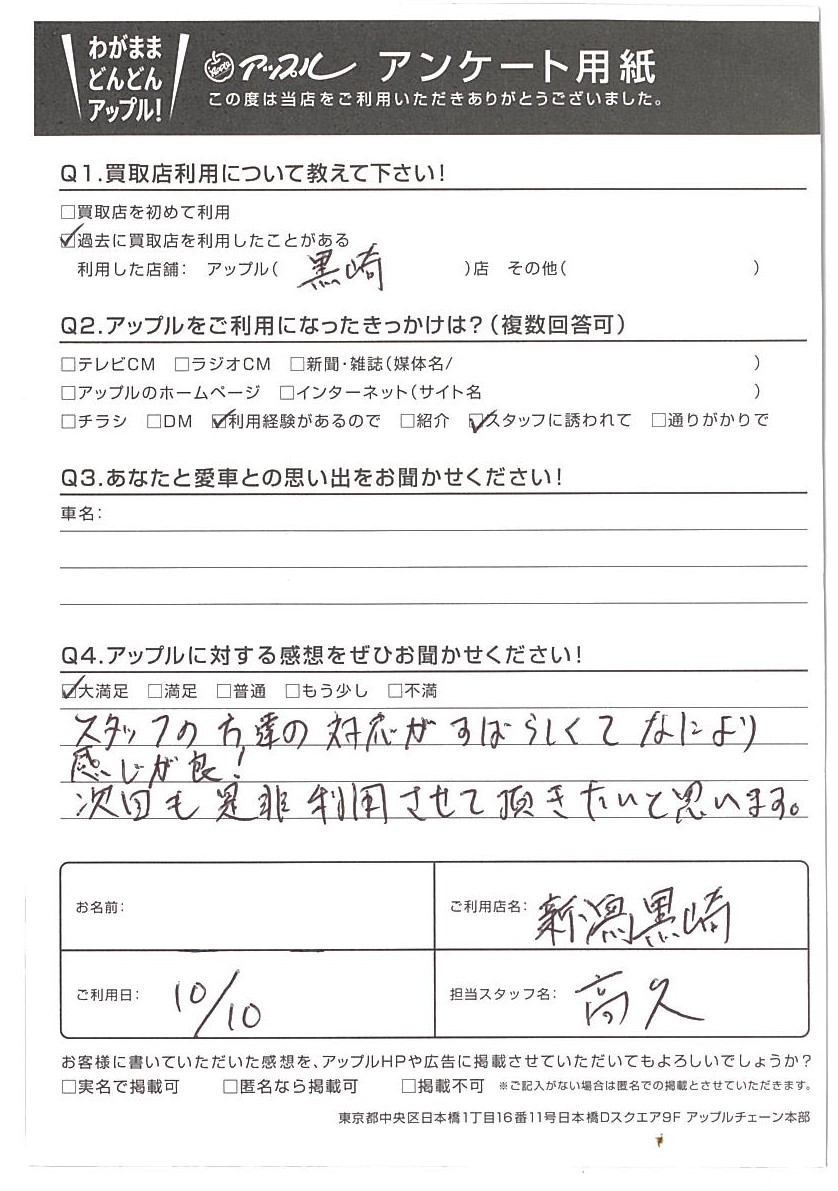 わがまま
どんどん
アップル!
Apple アップル アンケート用紙
この度は当店をご利用いただきありがとうございました。
Q1.買取店利用について教えて下さい!
□買取店を初めて利用
☑過去に買取店を利用したことがある
利用した店舗: アップル(黒崎)店 その他( )
Q2.アップルをご利用になったきっかけは?(複数回答可)
□テレビCM □ラジオCM □新聞・雑誌(媒体名/ )
□アップルのホームページ □インターネット(サイト名 )
□チラシ □DM ☑利用経験があるので □紹介 ☑スタッフに誘われて □通りがかりで
Q3.あなたと愛車との思い出をお聞かせください!
車名:
Q4.アップルに対する感想をぜひお聞かせください!
☑大満足 □満足 □普通 □もう少し □不満
スタッフの方達の対応がすばらしくてなにより
感じが良!
次回も是非利用させて頂きたいと思います。
お名前:
ご利用店名: 新潟黒崎
ご利用日: 10/10
担当スタッフ名: 高久
お客様に書いていただいた感想を、アップルHPや広告に掲載させていただいてもよろしいでしょうか?
□実名で掲載可 □匿名なら掲載可 □掲載不可 ※ご記入がない場合は匿名での掲載とさせていただきます。
東京都中央区日本橋1丁目16番11号日本橋Dスクエア9F アップルチェーン本部